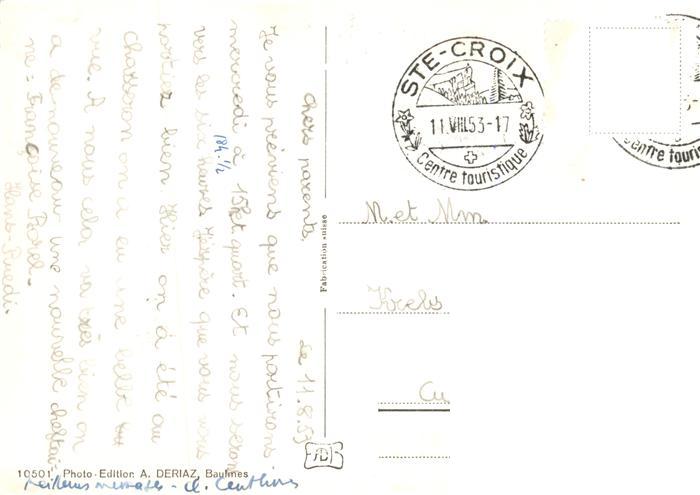 Chers parents,
le 11.8.53
Je vous préviens que nous partirons
mercredi à 15h et quart. Et nous serons
vers les six heures J'espère que vous vous
18h.1/2
portiez bien Hier on à été au
Chasseron on a eu une belle
vue. A nous cela va très bien on
a de nouveau une nouvelle cheftai-
ne = Françoise
Hans-Ruedi.
Meilleurs messages -
STE-CROIX
11.VIII.53-17
Centre touristique
Centre touristique
M. et Mm.
Krebs
Cu
Fabrication suisse
10501 Photo-Edition A. DERIAZ, Baulmes